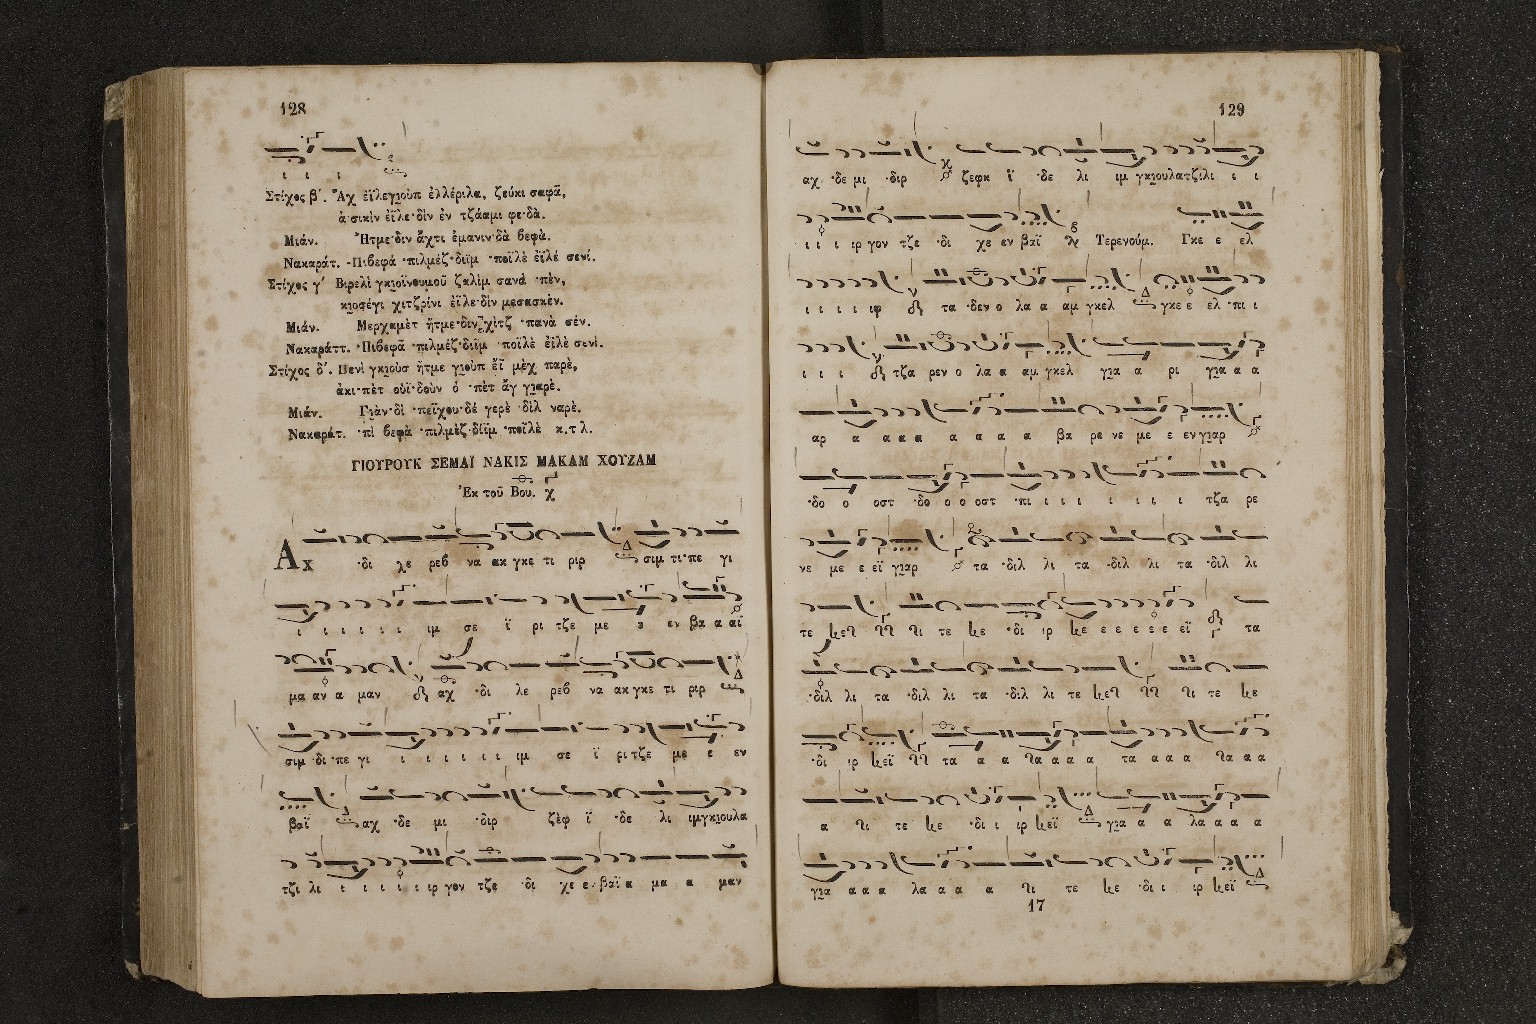 128
ι ι ι
Στίχος β΄. Ἂχ ἐϊλεγιοὺπ ἐλλέριλα, ζεύκι σαφᾶ,
ἀ·σικὶν ἐϊλε·δὶν ἐν τζάαμι φε·δὰ.
Μιάν. Ἤτμε·διν ἄχτι ἐμανιν·δὰ βεφὰ.
Νακαράτ. -Πιβεφὰ ·πιλμέζ·διϊμ ·ποϊλὲ ἐϊλέ σενί.
Στίχος γ΄ Βιρελὶ γκιοϊνουμοῦ ζαλὶμ σανὰ ·πὲν,
κιοσέγι χιτζρίνι ἐϊλε·δὶν μεσασκὲν.
Μιάν. Μερχαμὲτ ἤτμε·δὶν χὶτζ ·πανὰ σέν.
Νακαράττ. ·Πιβεφᾶ ·πιλμέζ·διϊμ ·ποϊλὲ ἐϊλὲ σενὶ.
Στίχος δ΄. Πενὶ γκιοὺσ ἤτμε γιοὺπ ἔϊ μὲχ παρὲ,
ἀκι·πὲτ οὐϊ·δοὺν ὁ ·πὲτ ἄγ γιαρὲ.
Μιάν. Γιὰν·δὶ ·πεϊχου·δέ γερὲ ·δὶλ ναρὲ.
Νακαράτ. ·πὶ βεφὰ ·πιλμὲζ·δίϊμ ·ποϊλὲ κ.τ λ.
ΓΙΟΥΡΟΥΚ ΣΕΜΑΪ ΝΑΚΙΣ ΜΑΚΑΜ ΧΟΥΖΑΜ
Ἐκ τοῦ Βου.
Αχ ·δι χε ρεβ να ακ γκε τι ριρ σιμ τι·πε γι
ι ι ι ι ι ι ιμ σε ϊ ρι τζε με ε εν βα α αϊ
μα αν α μαν αχ ·δι λε ρεβ να ακ γκε τι ριρ
σιμ ·δι ·πε γι ι ι ι ι ι ι ιμ σε ϊ ρι τζε με ε εν
βαϊ αχ ·δε μι ·διρ ζὲφ ϊ ·δε λι ιμγκιουλα
τζι λι ι ι ι ι ι ιρ γον τζε ·δι χε ε· βαϊ α μα α μαν
129
αχ ·δε μι ·διρ ζεφκ ϊ ·δε λι ιμ γκιουλατζιλι ι ι
ι ι ι ιρ γον τζε ·δι χε εν βαϊ Τερενούμ. Γκε ε ελ
ι ι ι ι ιφ τα ·δεν ο λα α αμ γκελ γκε ε ελ ·πι ι
ι ι ι τζα ρεν ο λα α αμ γκελ για α ρι για α α
αρ α α α α α α α α βα ρε νε με ε εν γιαρ
·δο ο οστ ·δο ο ο οστ ·πι ι ι ι ι ι ι ι τζα ρε
νε με ε εϊ γιαρ τα ·διλ λι τα ·διλ λι τα ·διλ λι
·διλ λι τα ·διλ λι τα ·διλ λι τε
α τε ·δι ι ιρ για α α λα α α α
για α α α λα α α α τε ·δι ι ιρ
17